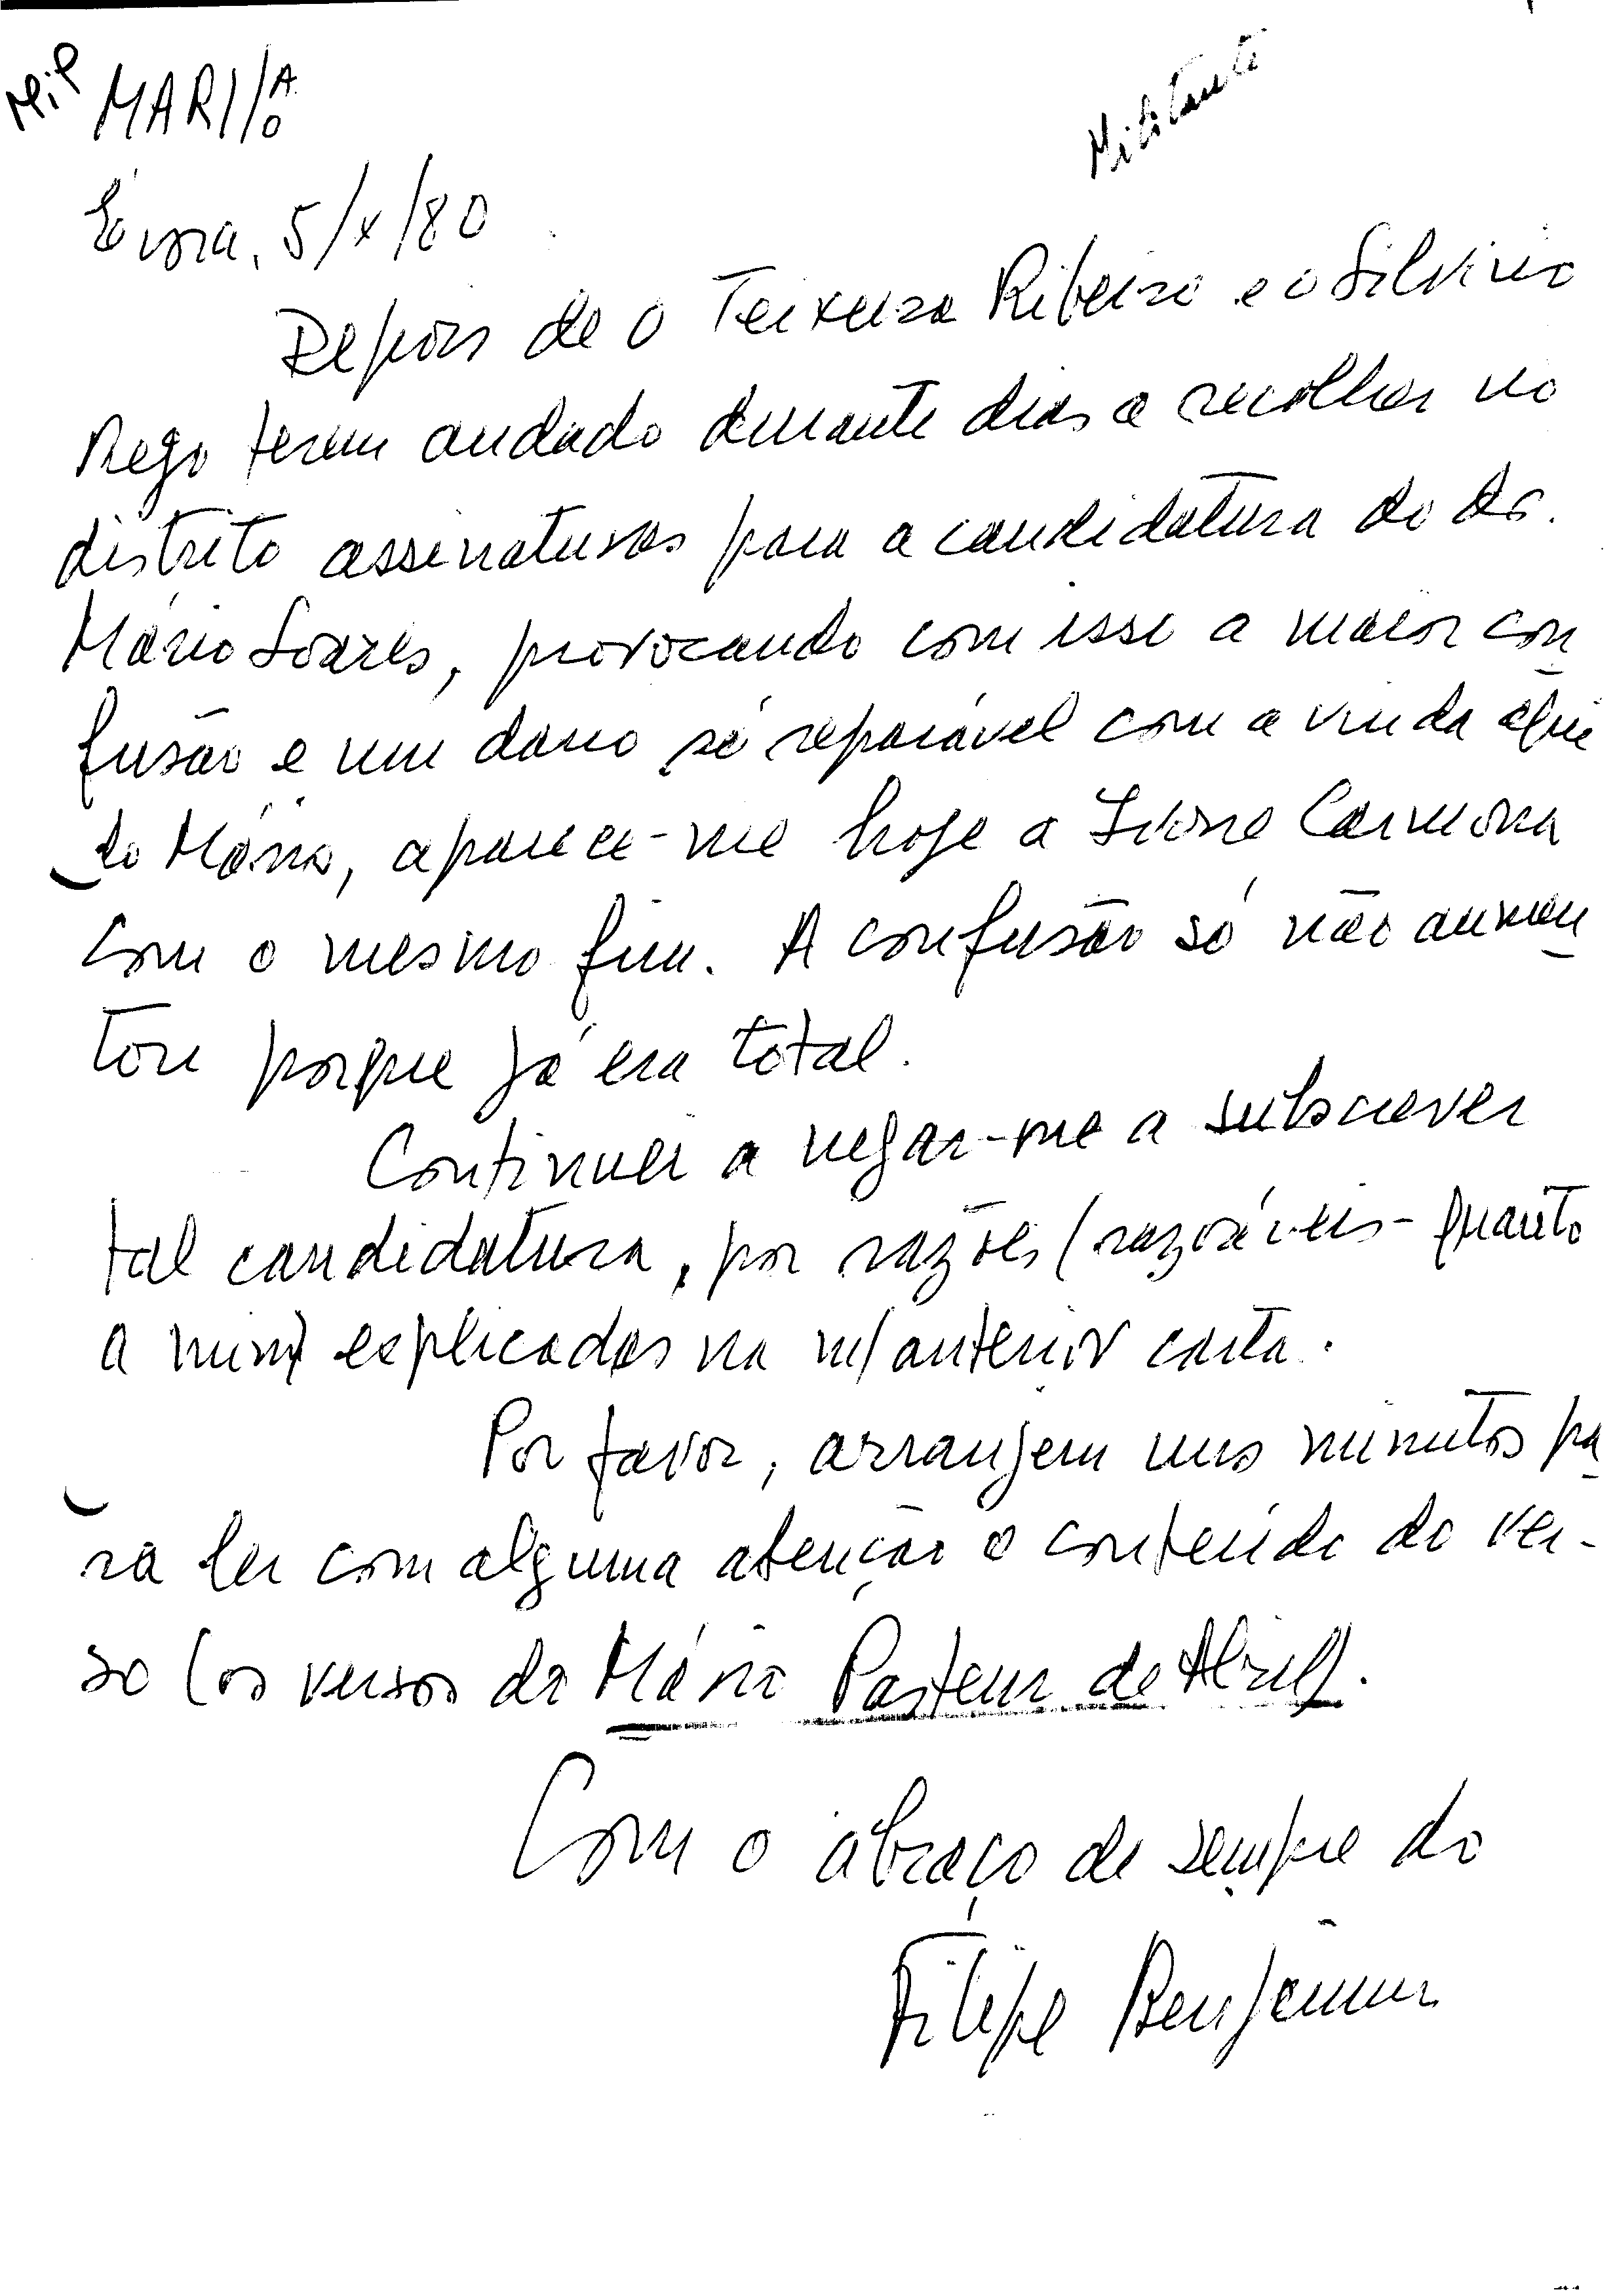 MiP
Militante
MARI/A/O
Évora, 5/X/80
Depois de o Teixeira Ribeiro e o Silvino
Rego terem andado durante dias a recolher no
distrito assinaturas para a candidatura do dr.
Mário Soares, provocando com isso a maior con
fusão e um dano só reparável com a vinda aqui
do Mário, aparece-me hoje a Carmona
com o mesmo fim. A confusão só não aumen
tou porque já era total.
Continuei a negar-me a subscrever
tal candidatura, por razões (razoáveis - quanto
a mim) explicadas na m/ anterior carta.
Por favor, arranjem uns minutos pa
ra ler com alguma atenção o conteúdo do ver-
so (os versos do Mário Pasteur de Abril).
Com o abraço de sempre do
Filipe Benjamim